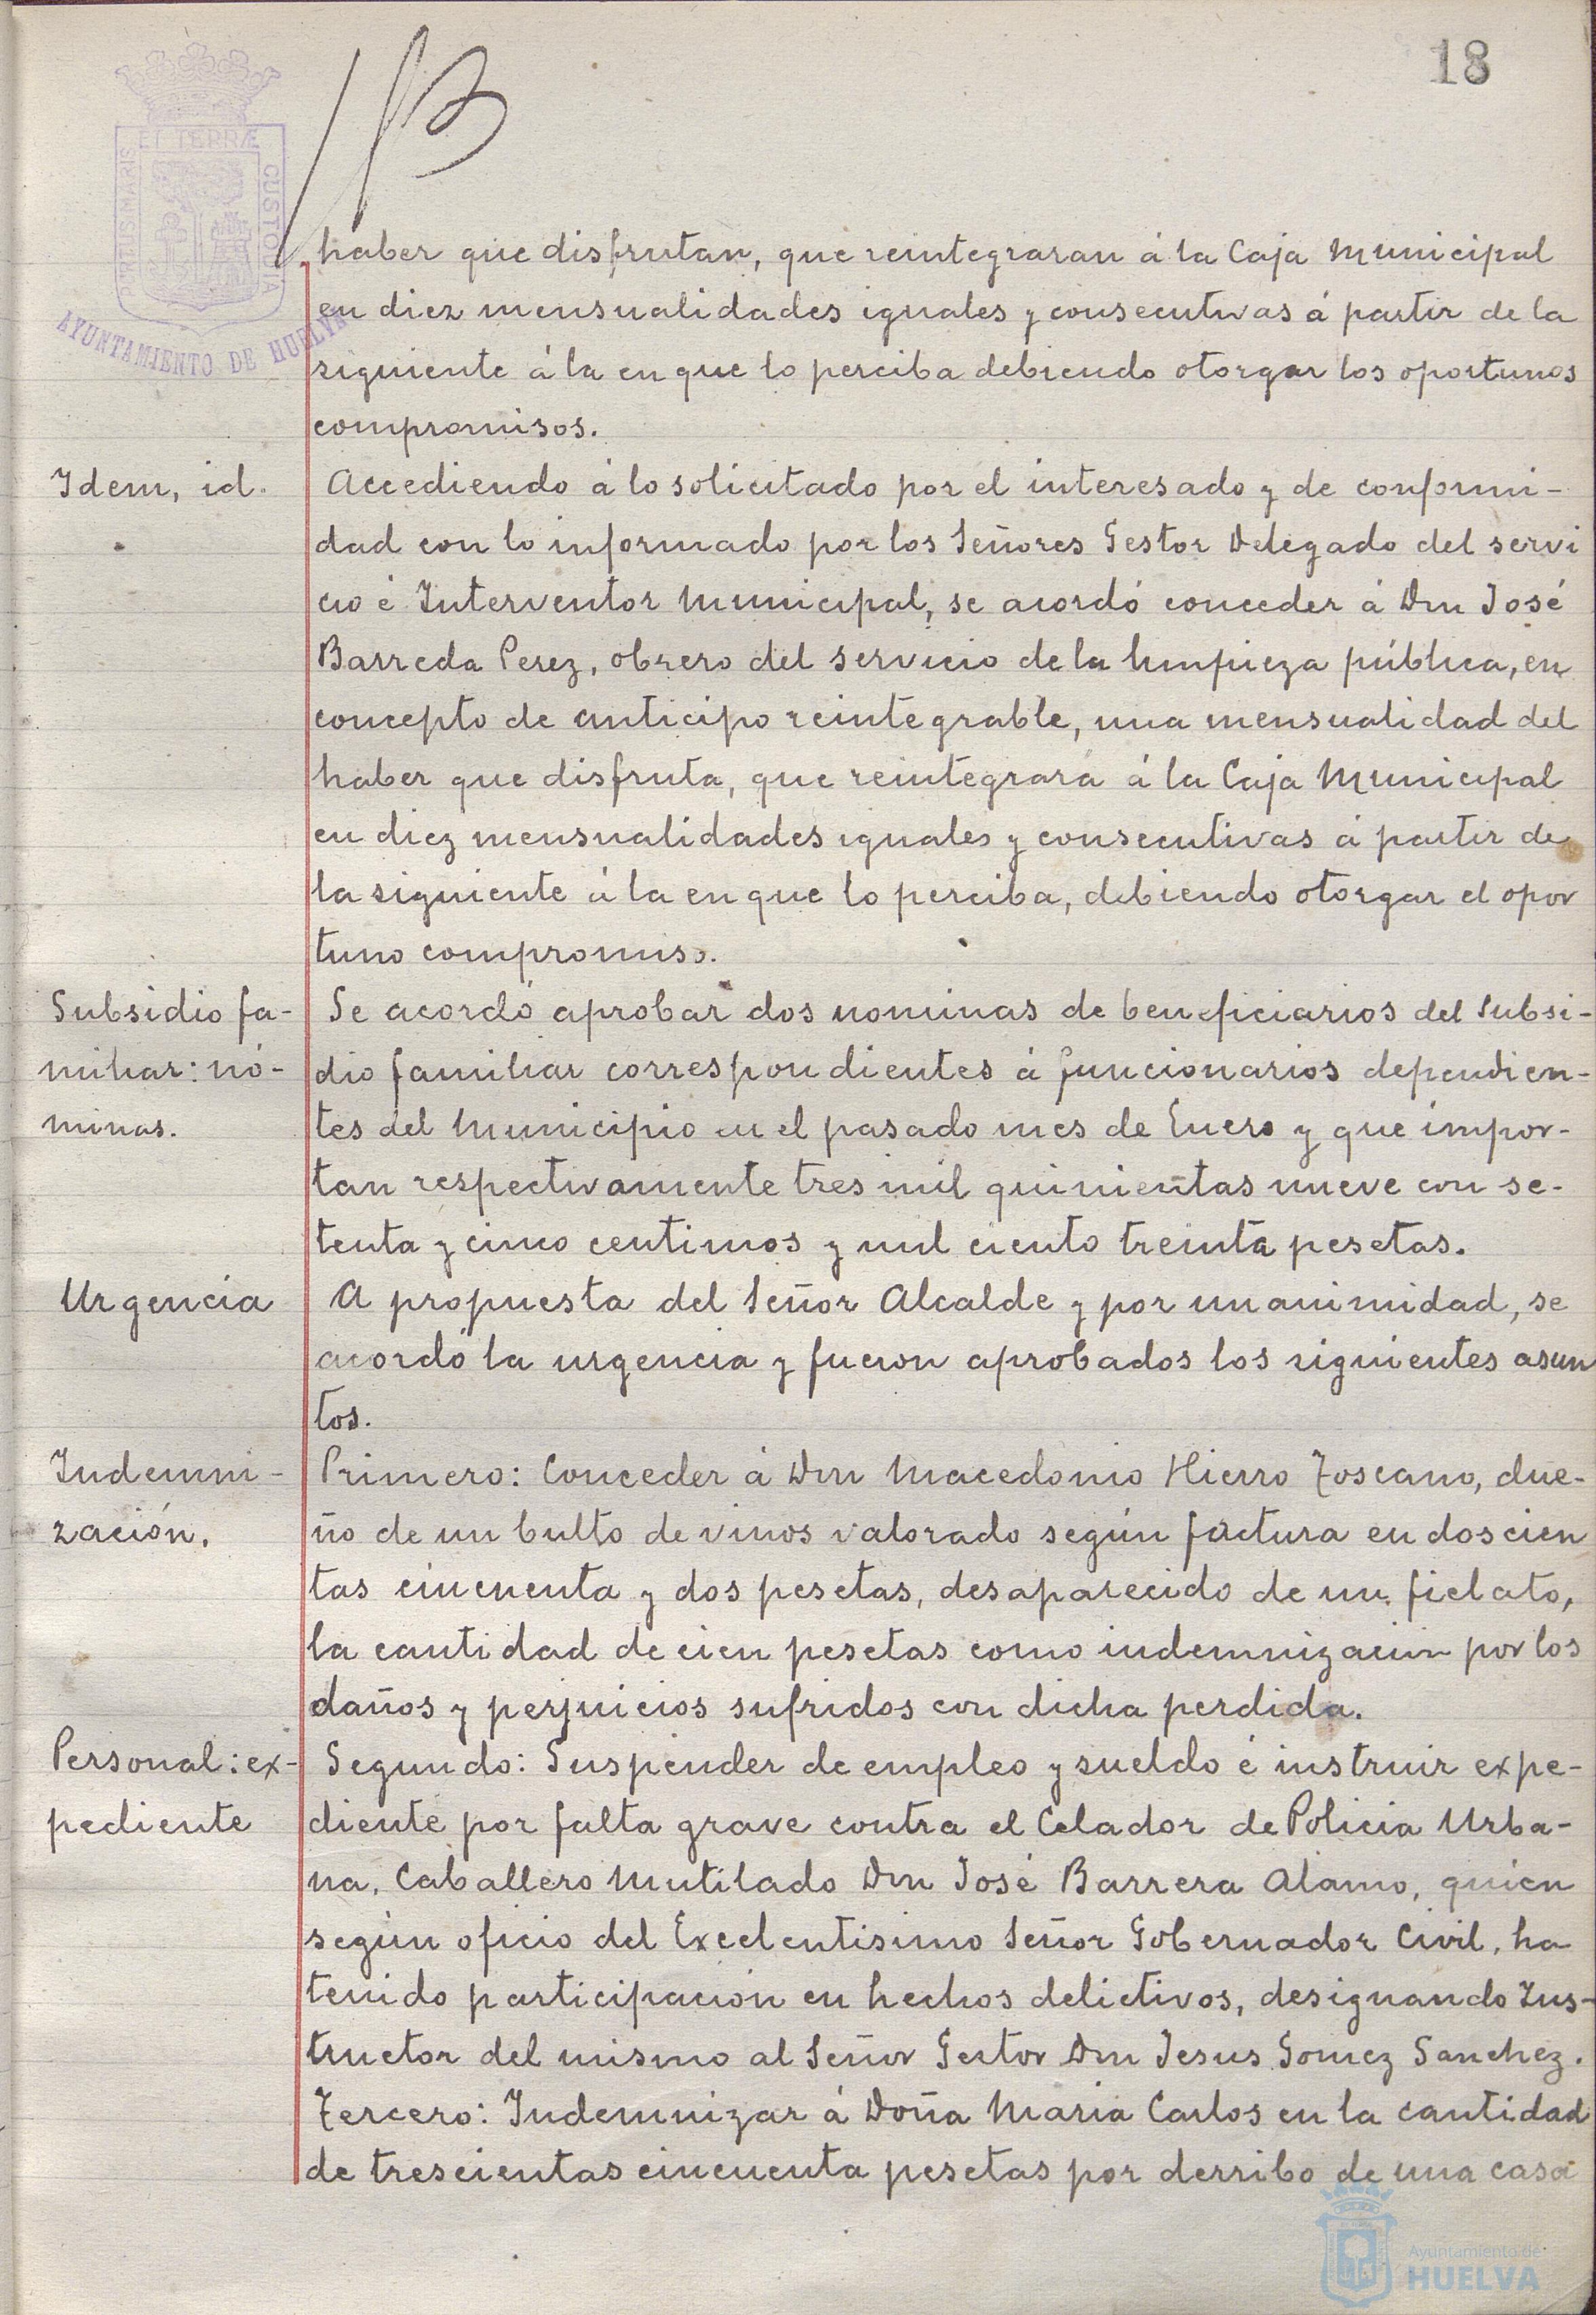 18
ET TERRÆ
CUSTODIA
PORTUS MARIS
AYUNTAMIENTO DE HUELVA
haber que disfrutan, que reintegraran á la Caja Municipal
en diez mensualidades iguales y consecutivas á partir de la
siguiente á la en que lo perciba debiendo otorgar los oportunos
compromisos.
Idem, id.
Accediendo á lo solicitado por el interesado y de conformi-
dad con lo informado por los Señores Gestor Delegado del servi
cio é Interventor Municipal, se acordó conceder á Don José
Barreda Perez, obrero del servicio de la limpieza pública, en
concepto de anticipo reintegrable, una mensualidad del
haber que disfruta, que reintegrara á la Caja Municipal
en diez mensualidades iguales y consecutivas á partir de
la siguiente á la en que lo perciba, debiendo otorgar el opor
tuno compromiso.
Subsidio fa-
miliar: nó-
minas.
Se acordó aprobar dos nominas de beneficiarios del Subsi-
dio familiar correspondientes á funcionarios dependien-
tes del Municipio en el pasado mes de Enero y que impor-
tan respectivamente tres mil quinientas nueve con se-
tenta y cinco centimos y mil ciento treinta pesetas.
Urgencia
A propuesta del Señor Alcalde y por unanimidad, se
acordó la urgencia y fueron aprobados los siguientes asun
tos.
Indemni-
zación.
Primero: Conceder á Don Macedonio Hierro Toscano, due-
ño de un bulto de vinos valorado según factura en doscien
tas cincuenta y dos pesetas, desaparecido de un fielato,
la cantidad de cien pesetas como indemnización por los
daños y perjuicios sufridos con dicha perdida.
Personal: ex-
pediente
Segundo: Suspender de empleo y sueldo é instruir expe-
diente por falta grave contra el Celador de Policia Urba-
na, Caballero Mutilado Don José Barrera Alamo, quien
según oficio del Excelentisimo Señor Gobernador Civil, ha
tenido participación en hechos delictivos, designando Ins-
tructor del mismo al Señor Gestor Don Jesus Gomez Sanchez.
Tercero: Indemnizar á Doña Maria Carlos en la cantidad
de trescientas cincuenta pesetas por derribo de una casa
Ayuntamiento de
HUELVA